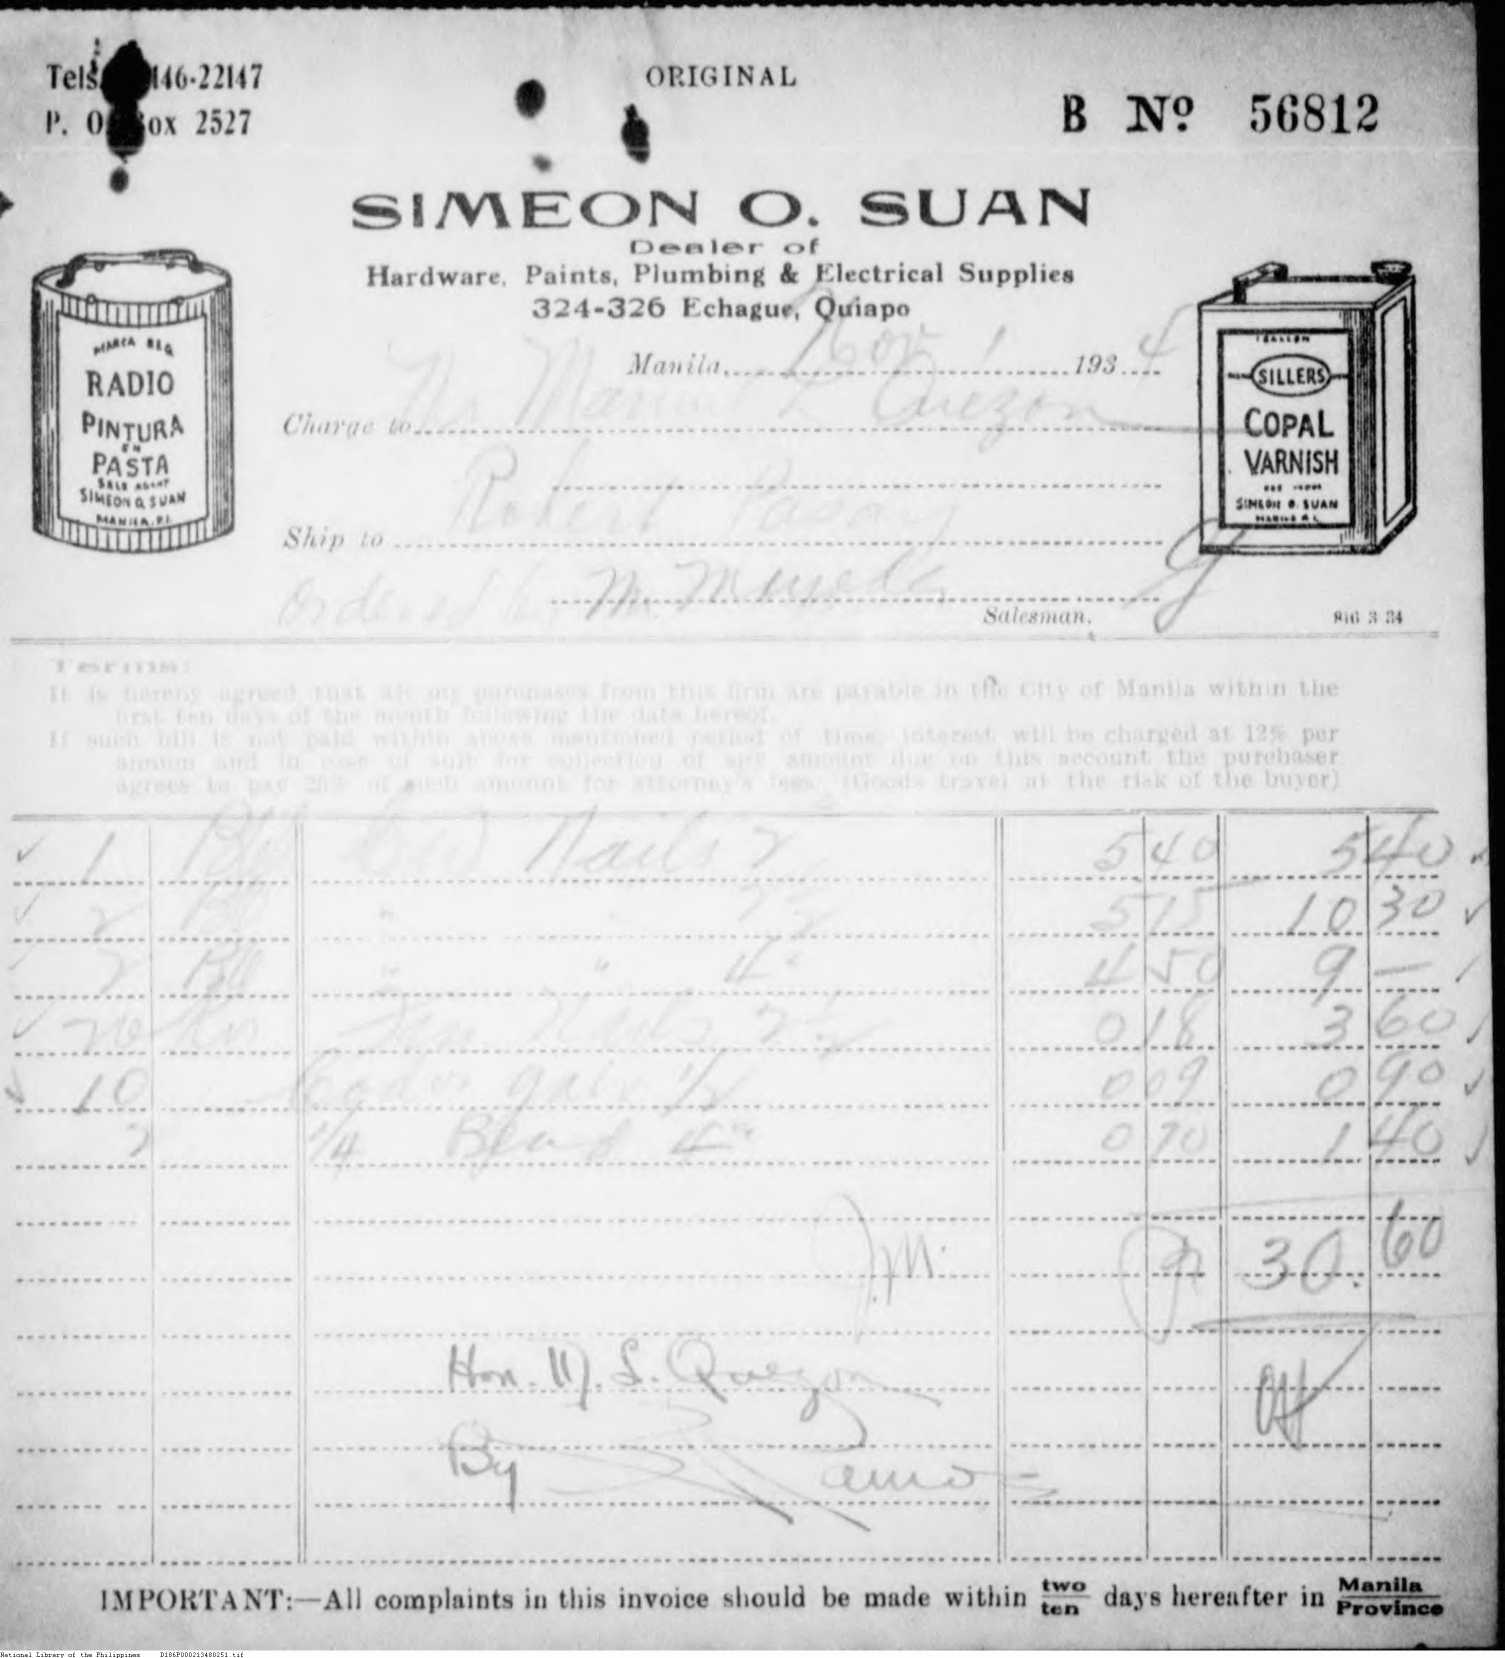 Tels. 146-22147
P. O. Box 2527
ORIGINAL
B Nº 56812
SIMEON O. SUAN
Dealer of
Hardware, Paints, Plumbing & Electrical Supplies
324-326 Echague, Quiapo
Manila, Nov 1 1934
Charge to Mr Manuel L Quezon
Robert Pasay
Ship to
Ordered by M.
Salesman,
MARCA REG
RADIO
PINTURA
EN
PASTA
SOLE AGENT
SIMEON O. SUAN
MANILA, P.I.
1 GALLON
SILLERS
COPAL
VARNISH
SIMEON O. SUAN
MANILA P.I.
Terms:
It is hereby agreed that all my purchases from this firm are payable in the City of Manila within the
first ten days of the month following the date hereof.
If such bill is not paid within above mentioned period of time, interest will be charged at 12% per
annum and in case of suit for collection of any amount due on this account the purchaser
agrees to pay 25% of such amount for attorney's fees. (Goods travel at the risk of the buyer)
1 Nails 2 5 40 5 40
2 " " 2 1/2 5 15 10 30
2 " " 4" 4 50 9 —
20 Nails 2 1/2 0 18 3 60
10 1/2 0 09 0 90
2 1/4 4" 0 70 1 40
J.M. 30.60
Hon. M. L. Quezon
By Ramos
IMPORTANT:—All complaints in this invoice should be made within two/ten days hereafter in Manila/Province
National Library of the Philippines D186P000213480251.tif